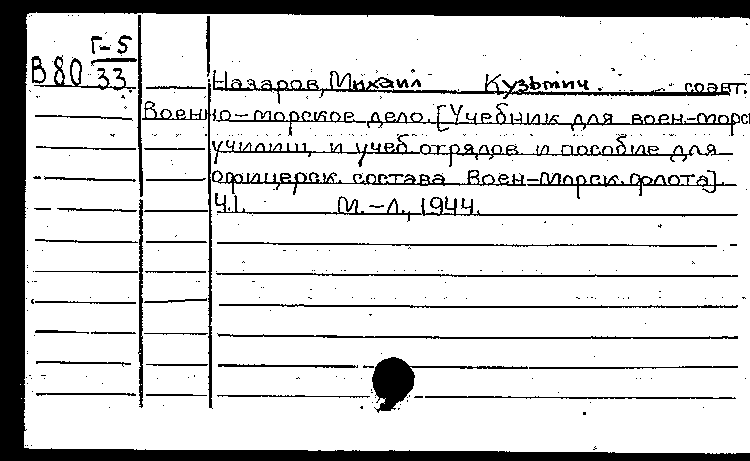 Г-5
В 80 33.
Назаров, Михаил Кузьмич. соавт.
Военно-морское дело. [Учебник для воен-морс
училищ и учеб. отрядов и пособие для
офицерск. состава Воен-Морск. флота].
Ч.1. М.-Л., 1944.